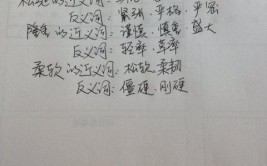 的近义词:
反义词: 紧张、严格、严密
隆重的近义词: 谨慎、慎重、盛大
反义词: 轻率、草率
柔软的近义词: 松软、柔韧
反义词: 僵硬、刚硬